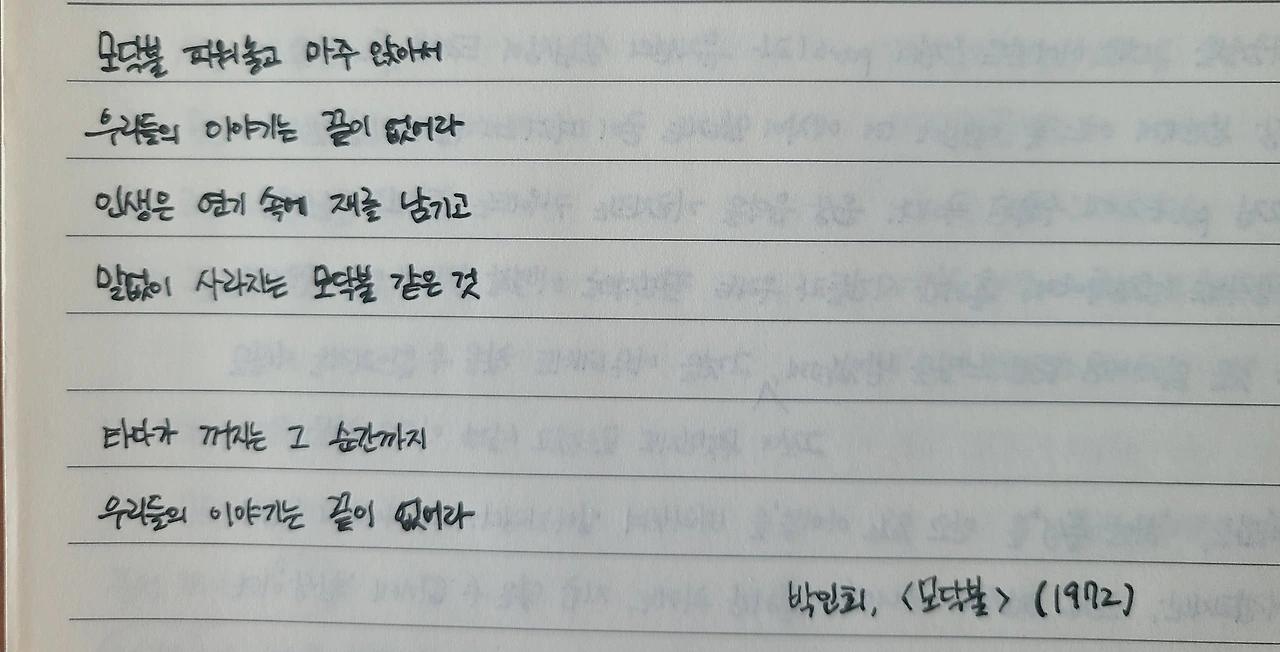 모닥불 피워놓고 마주 앉아서
우리들의 이야기는 끝이 없어라
인생은 연기 속에 재를 남기고
말없이 사라지는 모닥불 같은 것
타다가 꺼지는 그 순간까지
우리들의 이야기는 끝이 없어라
박인희, <모닥불> (1972)